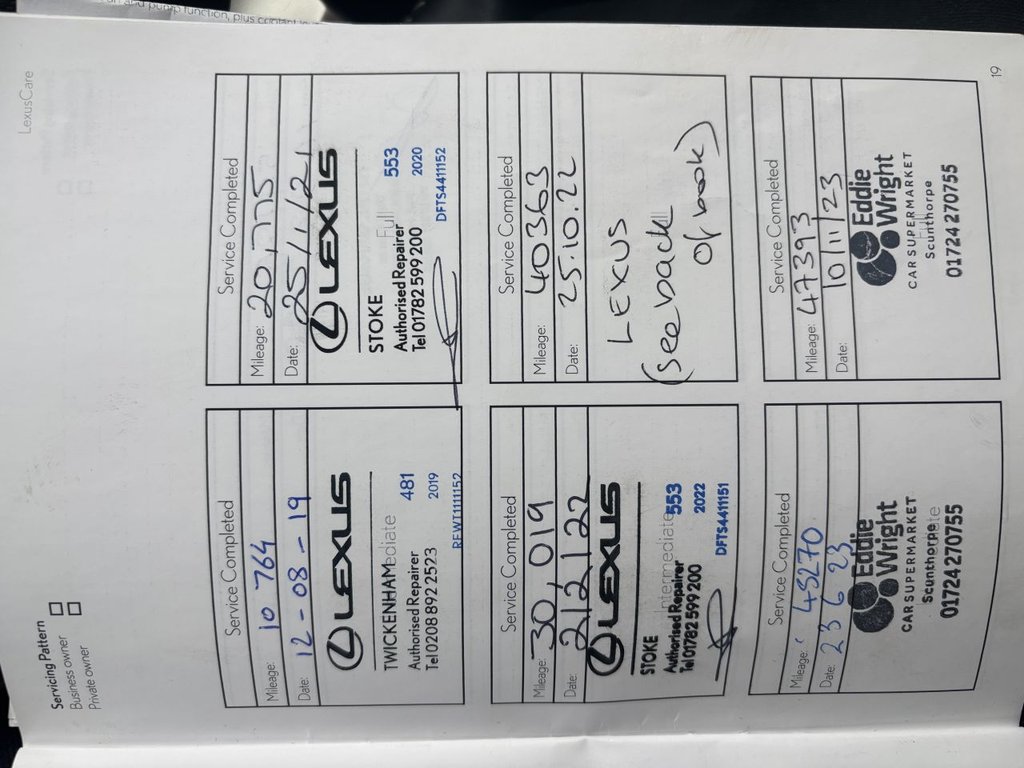 LexusCare
Servicing Pattern
Business owner
Private owner
Service Completed
Mileage: 10 764
Date: 12-08-19
LEXUS
TWICKENHAM
481
Authorised Repairer
2019
Tel 0208 892 2523
REWT1111152
Service Completed
Mileage: 20,775
Date: 25/1/21
LEXUS
STOKE
Full
553
Authorised Repairer
2020
Tel 01782 599 200
DFTS4411152
Service Completed
Mileage: 30,019
Date: 21/2/22
LEXUS
STOKE
Intermediate
553
Authorised Repairer
2022
Tel 01782 599 200
DFTS4411151
Service Completed
Mileage: 40363
Date: 25.10.22
LEXUS
(see back
of book)
Service Completed
Mileage: 43270
Date: 23 6 23
Eddie
Wright
CARSUPERMARKET
Scunthorpe
01724 270755
Service Completed
Mileage: 47393
Date: 10/11/23
Eddie
Wright
CARSUPERMARKET
Scunthorpe
01724 270755
19